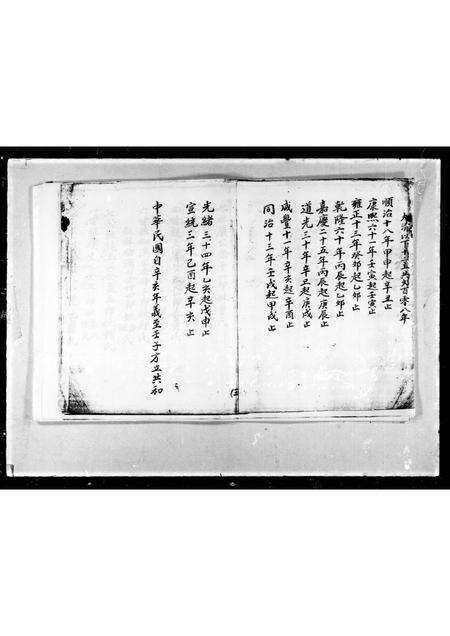 順治十八年甲申起辛丑止
康熙六十一年壬寅起壬寅止
雍正十三年癸卯起乙卯止
乾隆六十年丙辰起乙卯止
嘉慶二十五年丙辰起庚辰止
道光三十年辛巳起庚戌止
咸豐十一年辛亥起辛酉止
同治十三年壬戌起甲戌止
光緒三十四年乙亥起戊申止
宣統三年乙酉起辛亥止
中華民國自辛亥年義至壬子方立共和